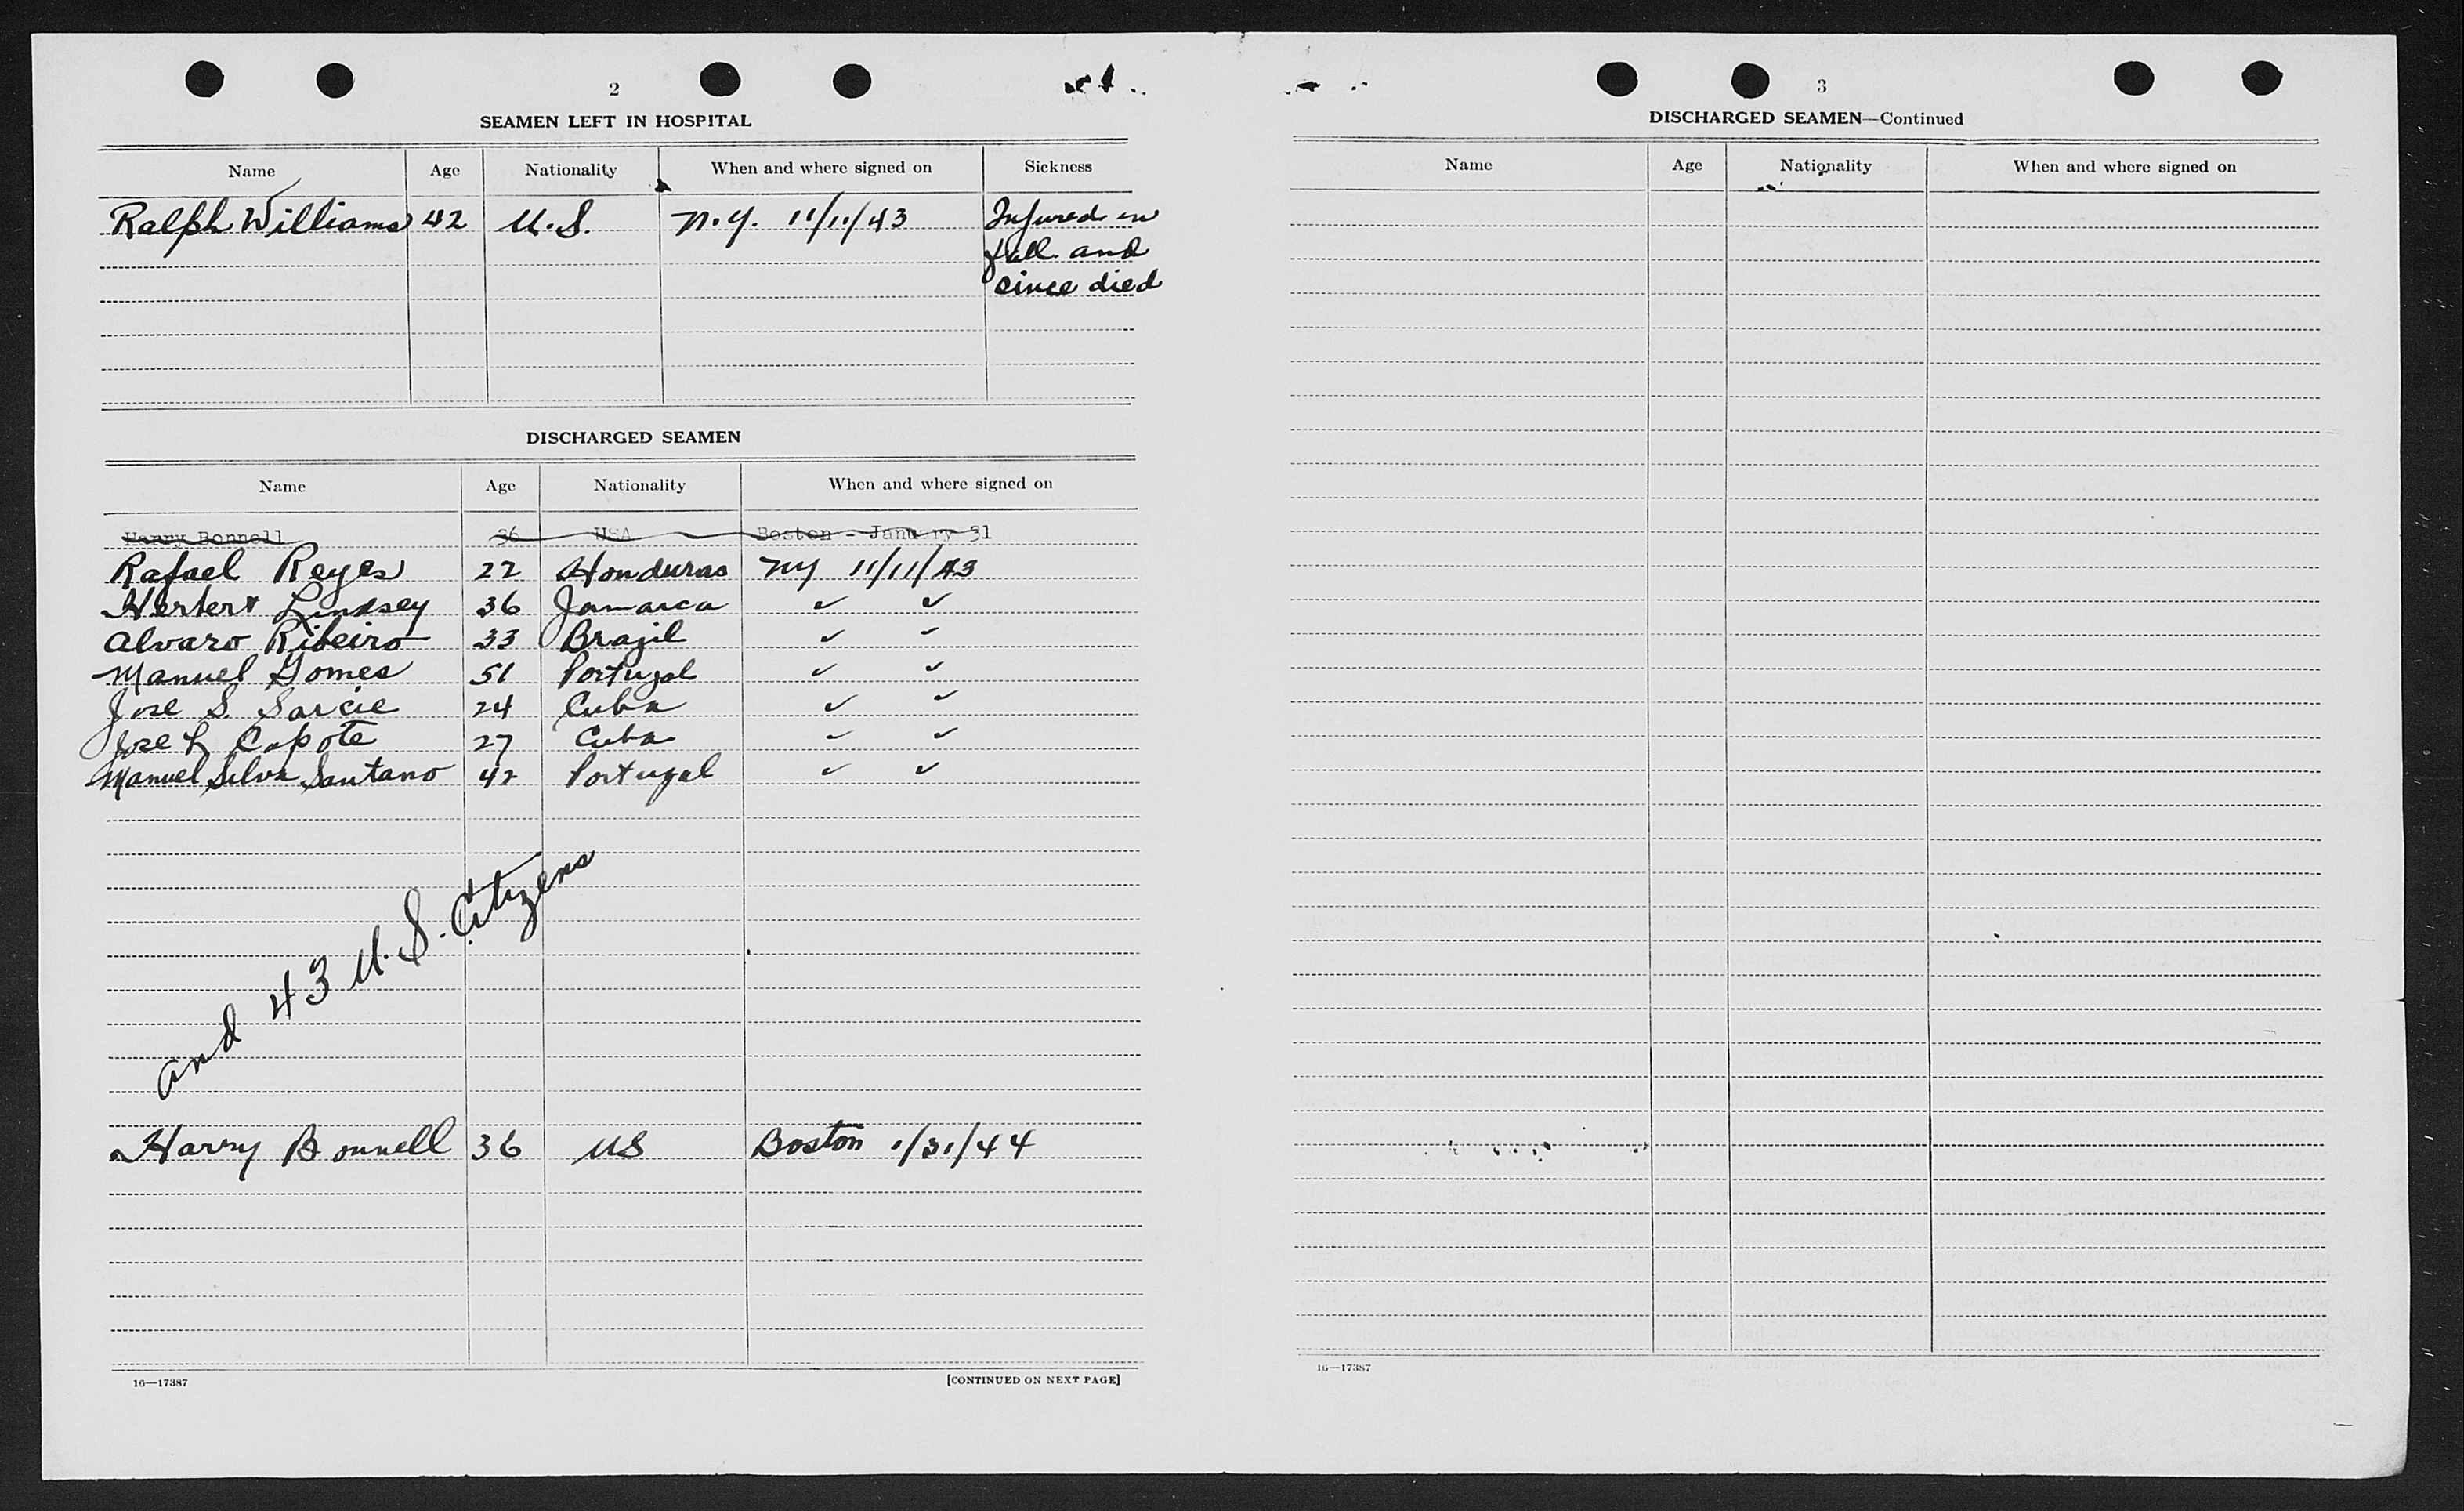 2
SEAMEN LEFT IN HOSPITAL
Name Age Nationality When and where signed on Sickness
Ralph Williams 42 U.S. N.Y. 11/11/43 Injured in
fall and
since died
DISCHARGED SEAMEN
Name Age Nationality When and where signed on
Harry Bonnell 36 USA Boston - January 31
Rafael Reyes 22 Honduras NY 11/11/43
Herbert Lindsey 36 Jamaica ✓ ✓
Alvaro Ribeiro 33 Brazil ✓ ✓
Manuel Gomes 51 Portugal ✓ ✓
Jose S. Sarcie 24 Cuba ✓ ✓
Jose L Capote 27 Cuba ✓ ✓
Manuel Silva Santano 42 Portugal ✓ ✓
and 43 U.S. Citizens
Harry Bonnell 36 US Boston 1/31/44
16—17387 [CONTINUED ON NEXT PAGE]
3
DISCHARGED SEAMEN—Continued
Name Age Nationality When and where signed on
16—17387